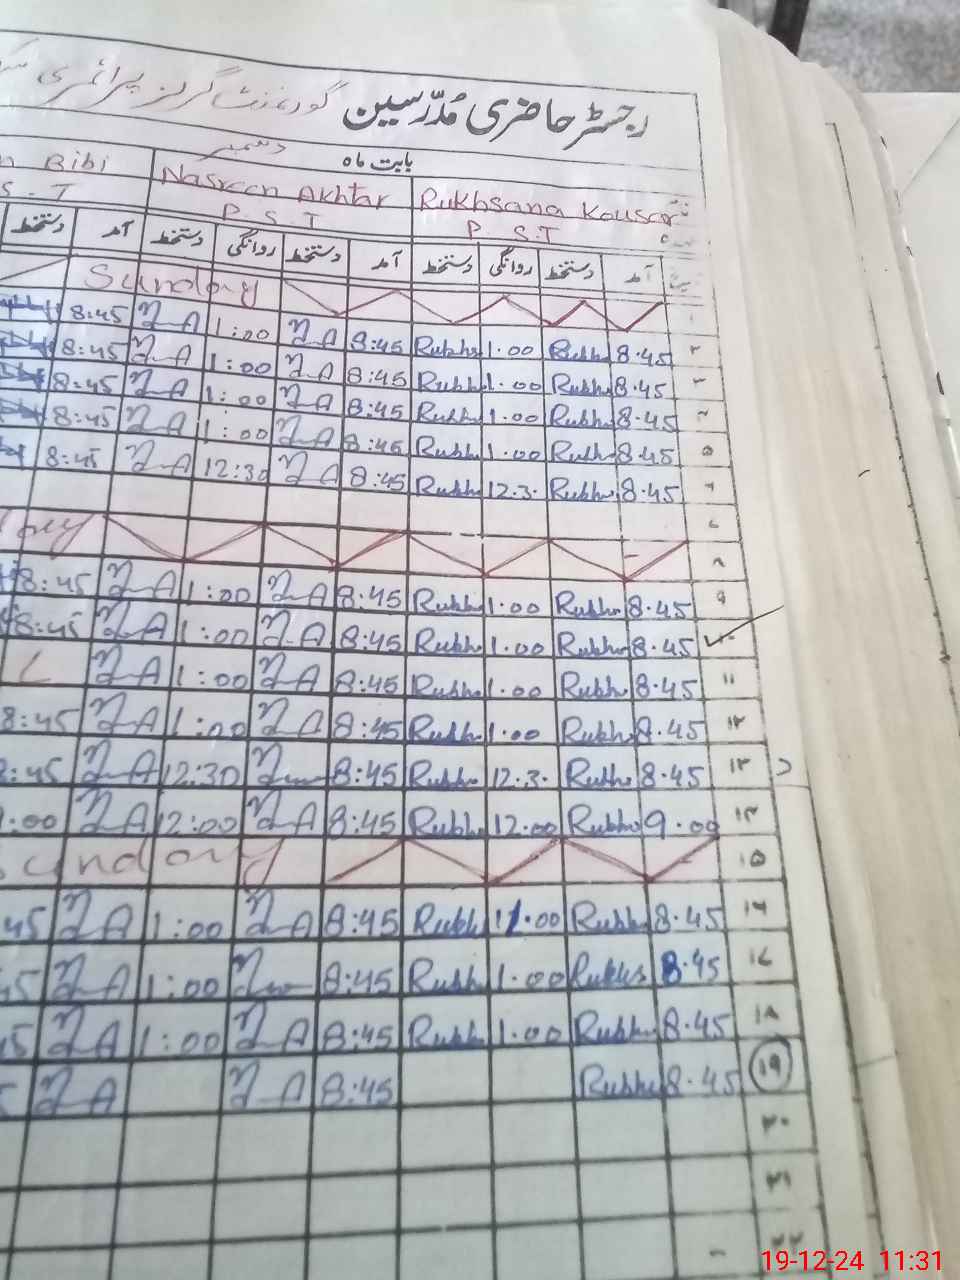 رجسٹر حاضری مُدّرسین گورنمنٹ گرلز پرائمری
بابت ماہ دسمبر
Bibi Nasreen Akhtar Rukhsana Kousar
S.T P.S.T P S.T
دستخط آمد دستخط روانگی دستخط آمد دستخط روانگی دستخط آمد
Sunday ۱
8:45 N.A 1:00 N.A 8:45 Rukhs 1.00 Rukhs 8.45 ۲
8:45 N.A 1:00 N.A 8:45 Rukhs 1.00 Rukhs 8.45 ۳
8:45 N.A 1:00 N.A 8:45 Rukhs 1.00 Rukhs 8.45 ۴
8:45 N.A 1:00 N.A 8:45 Rukhs 1.00 Rukhs 8.45 ۵
8:45 N.A 12:30 N.A 8:45 Rukhs 12.3. Rukhs 8.45 ۶
۷
۸
8:45 N.A 1:00 N.A 8:45 Rukhs 1.00 Rukhs 8.45 ۹
8:45 N.A 1:00 N.A 8:45 Rukhs 1.00 Rukhs 8.45 ۱۰
L N.A 1:00 N.A 8:45 Rukhs 1.00 Rukhs 8.45 ۱۱
8:45 N.A 1:00 N.A 8:45 Rukhs 1.00 Rukhs 8.45 ۱۲
8:45 N.A 12:30 8:45 Rukhs 12.3. Rukhs 8.45 ۱۳
:00 N.A 12:00 N.A 8:45 Rukhs 12.00 Rukhs 9.00 ۱۴
Sunday ۱۵
45 N.A 1:00 N.A 8:45 Rukhs 1.00 Rukhs 8.45 ۱۶
45 N.A 1:00 8:45 Rukhs 1.00 Rukhs 8.45 ۱۷
45 N.A 1:00 N.A 8:45 Rukhs 1.00 Rukhs 8.45 ۱۸
5 N.A N.A 8:45 Rukhs 8.45 ۱۹
۲۰
۲۱
۲۲
19-12-24 11:31